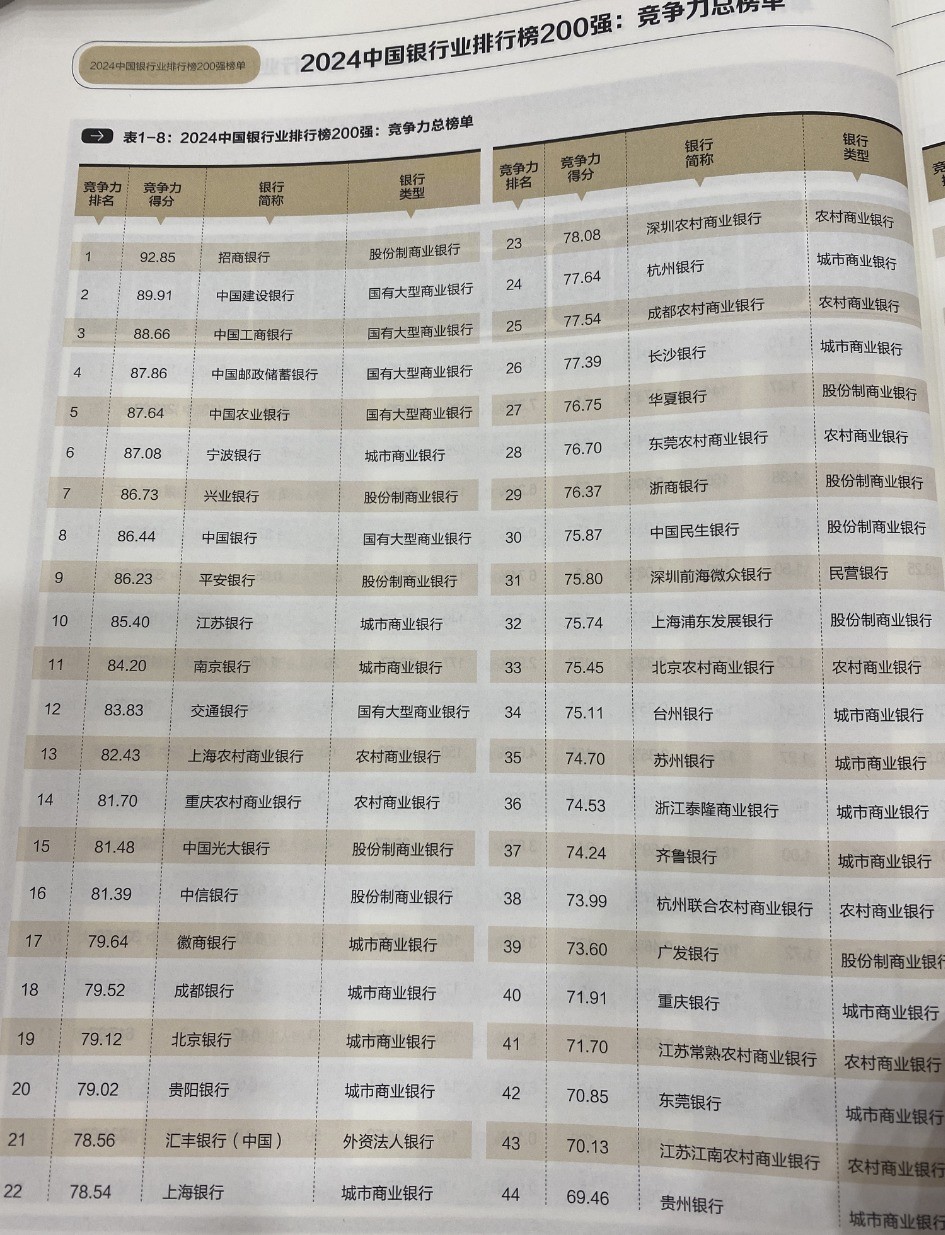 2024中国银行业排行榜200强榜单
2024中国银行业排行榜200强：竞争力总榜单
表1-8：2024中国银行业排行榜200强：竞争力总榜单
竞争力排名 竞争力得分 银行简称 银行类型
1 92.85 招商银行 股份制商业银行
2 89.91 中国建设银行 国有大型商业银行
3 88.66 中国工商银行 国有大型商业银行
4 87.86 中国邮政储蓄银行 国有大型商业银行
5 87.64 中国农业银行 国有大型商业银行
6 87.08 宁波银行 城市商业银行
7 86.73 兴业银行 股份制商业银行
8 86.44 中国银行 国有大型商业银行
9 86.23 平安银行 股份制商业银行
10 85.40 江苏银行 城市商业银行
11 84.20 南京银行 城市商业银行
12 83.83 交通银行 国有大型商业银行
13 82.43 上海农村商业银行 农村商业银行
14 81.70 重庆农村商业银行 农村商业银行
15 81.48 中国光大银行 股份制商业银行
16 81.39 中信银行 股份制商业银行
17 79.64 徽商银行 城市商业银行
18 79.52 成都银行 城市商业银行
19 79.12 北京银行 城市商业银行
20 79.02 贵阳银行 城市商业银行
21 78.56 汇丰银行（中国） 外资法人银行
22 78.54 上海银行 城市商业银行
竞争力排名 竞争力得分 银行简称 银行类型
23 78.08 深圳农村商业银行 农村商业银行
24 77.64 杭州银行 城市商业银行
25 77.54 成都农村商业银行 农村商业银行
26 77.39 长沙银行 城市商业银行
27 76.75 华夏银行 股份制商业银行
28 76.70 东莞农村商业银行 农村商业银行
29 76.37 浙商银行 股份制商业银行
30 75.87 中国民生银行 股份制商业银行
31 75.80 深圳前海微众银行 民营银行
32 75.74 上海浦东发展银行 股份制商业银行
33 75.45 北京农村商业银行 农村商业银行
34 75.11 台州银行 城市商业银行
35 74.70 苏州银行 城市商业银行
36 74.53 浙江泰隆商业银行 城市商业银行
37 74.24 齐鲁银行 城市商业银行
38 73.99 杭州联合农村商业银行 农村商业银行
39 73.60 广发银行 股份制商业银行
40 71.91 重庆银行 城市商业银行
41 71.70 江苏常熟农村商业银行 农村商业银行
42 70.85 东莞银行 城市商业银行
43 70.13 江苏江南农村商业银行 农村商业银行
44 69.46 贵州银行 城市商业银行